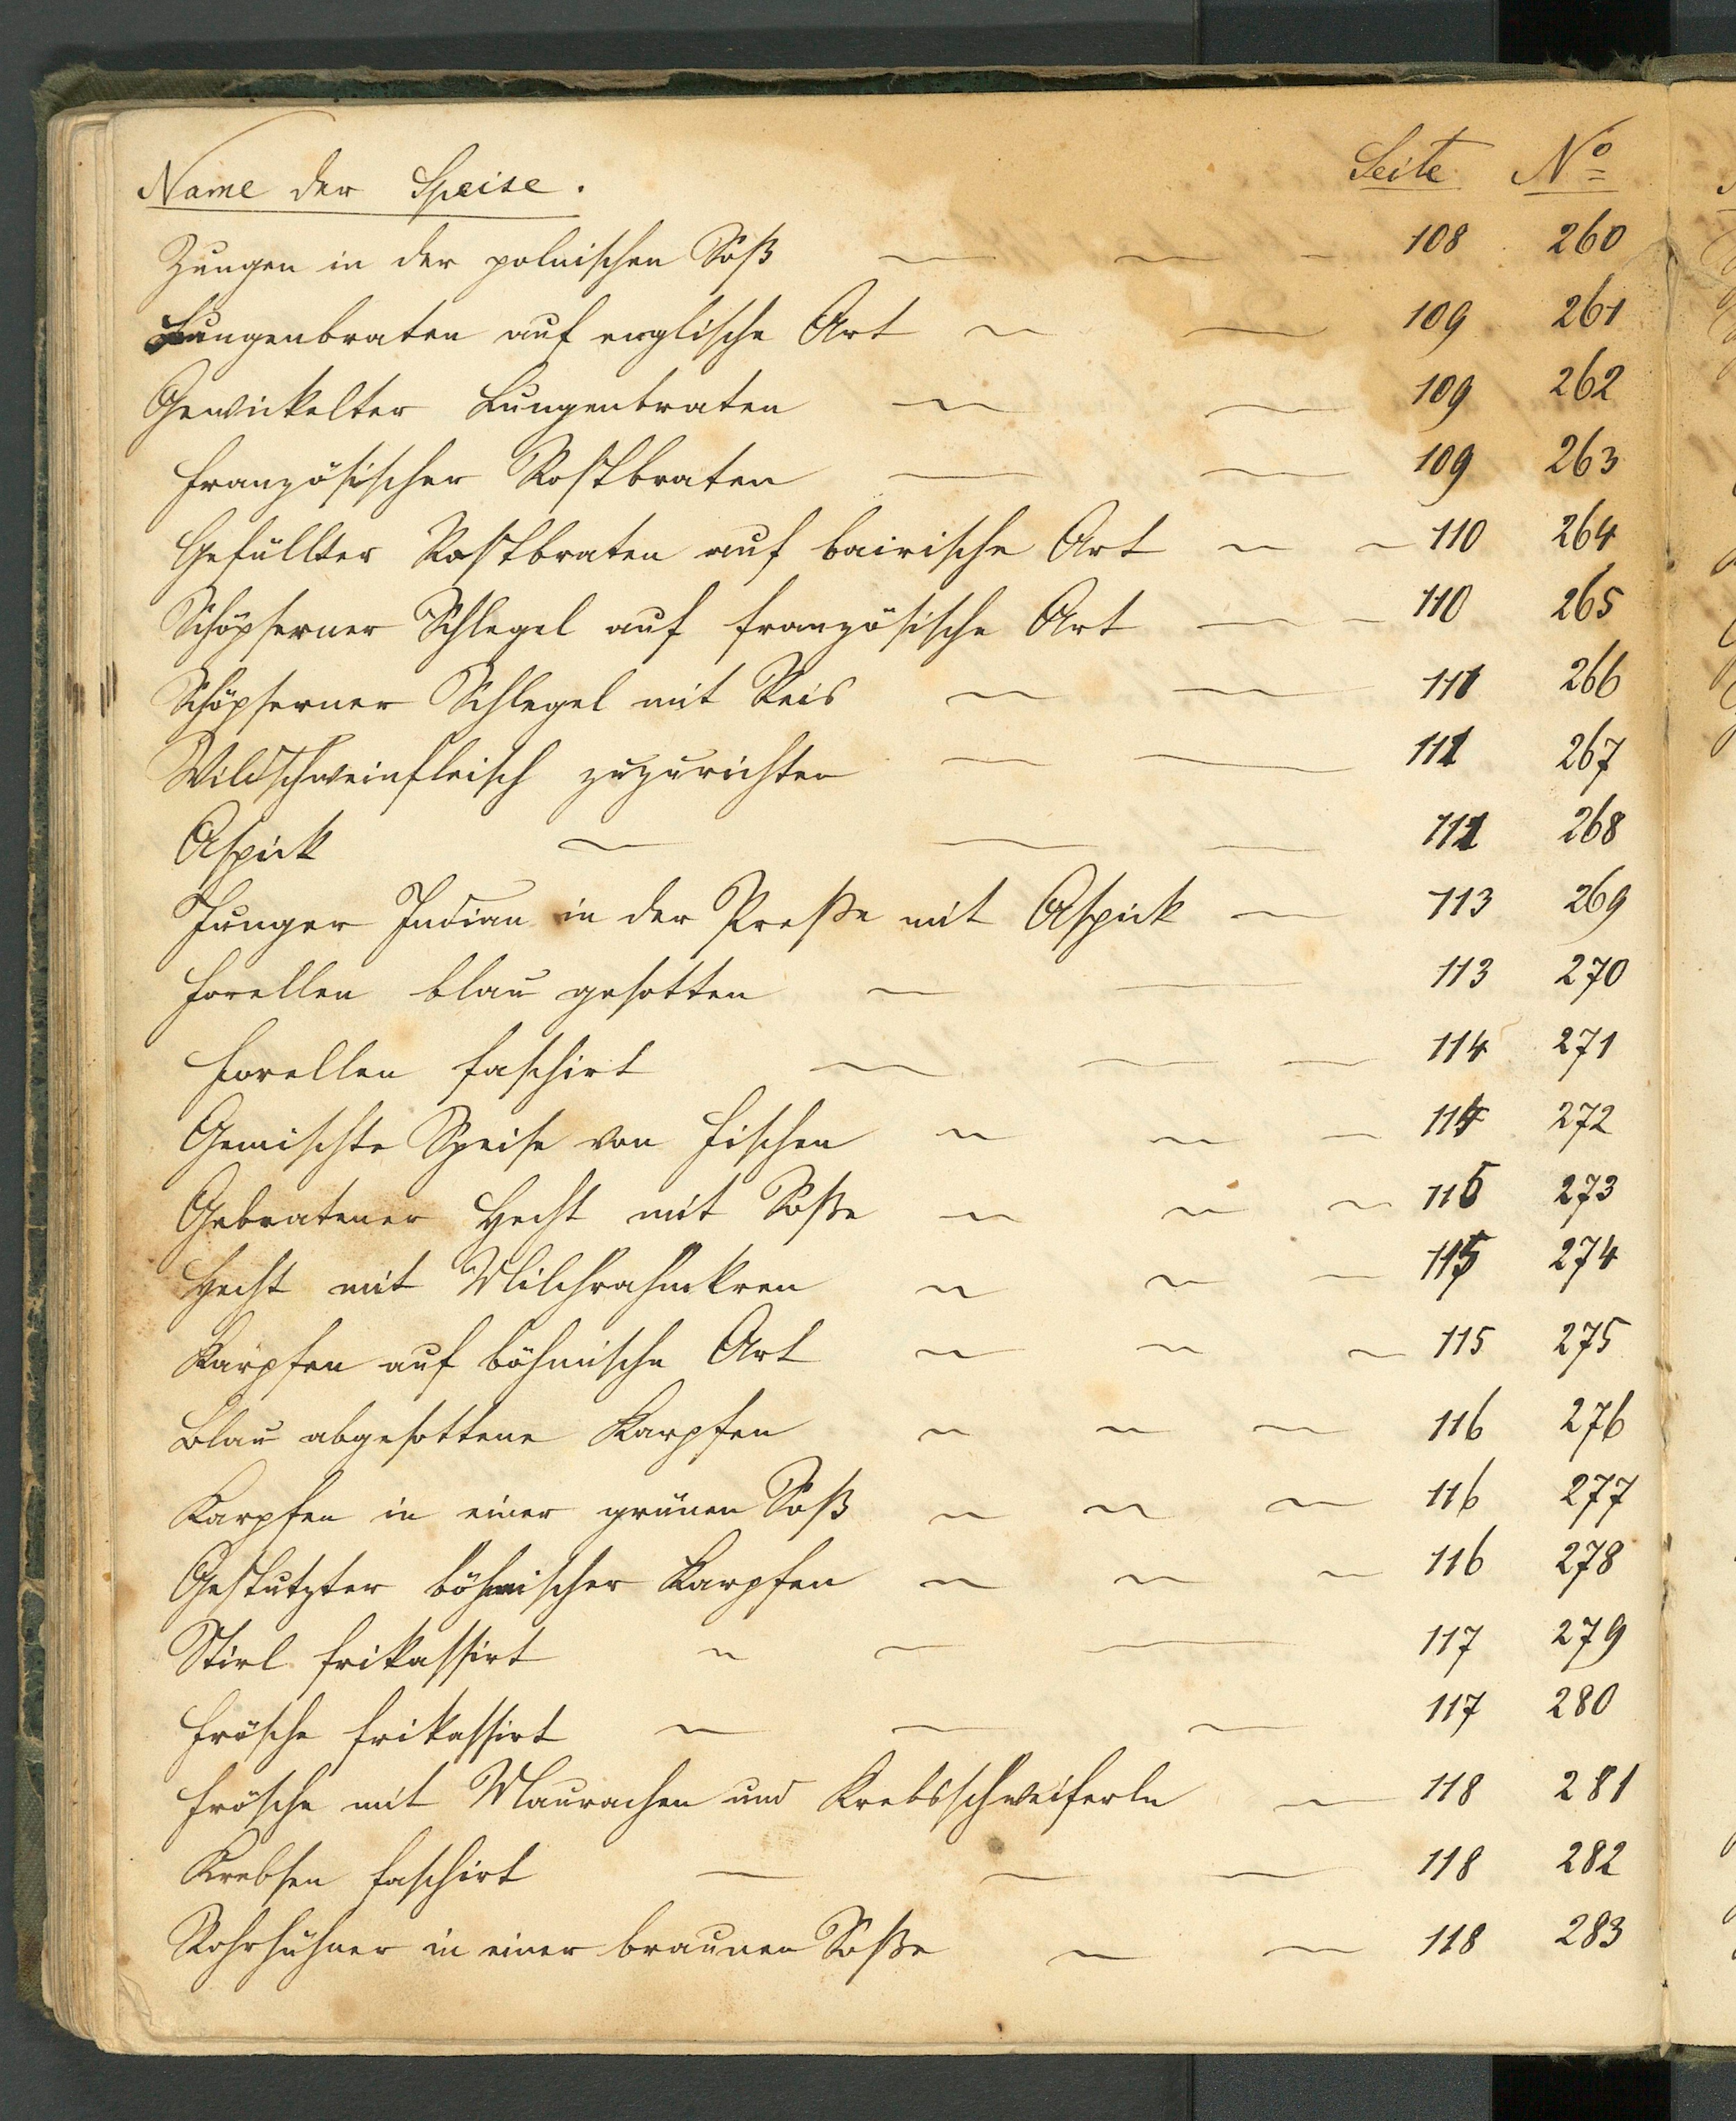 Name der Speise. Seite No
Zungen in der polnischen Soß 108 260
Lungenbraten auf englische Art 109 261
Gewickelter Lungenbraten 109 262
Französischer Rostbraten 109 263
Gefüllter Rostbraten auf bairische Art 110 264
Schöpserner Schlegel auf französische Art 110 265
Schöpserner Schlegel mit Reis 111 266
Wildschweinfleisch zuzurichten 111 267
Aspick 111 268
Junger Indian in der Preße mit Aspick 113 269
Forellen blau gesotten 113 270
Forellen faschirt 114 271
Gemischte Speise von Fischen 114 272
Gebratener Hecht mit Soße 115 273
Hecht mit Milchrahmkren 115 274
Karpfen auf böhmische Art 115 275
Blau abgesottene Karpfen 116 276
Karpfen in einer grünen Soß 116 277
Gestutzter böhmischer Karpfen 116 278
Stirl frikassirt 117 279
Frösche frikassirt 117 280
Frösche mit Maurachen und Krebsschweiferln 118 281
Krebsen faschirt 118 282
Rohrhühner in einer braunen Soße 118 283